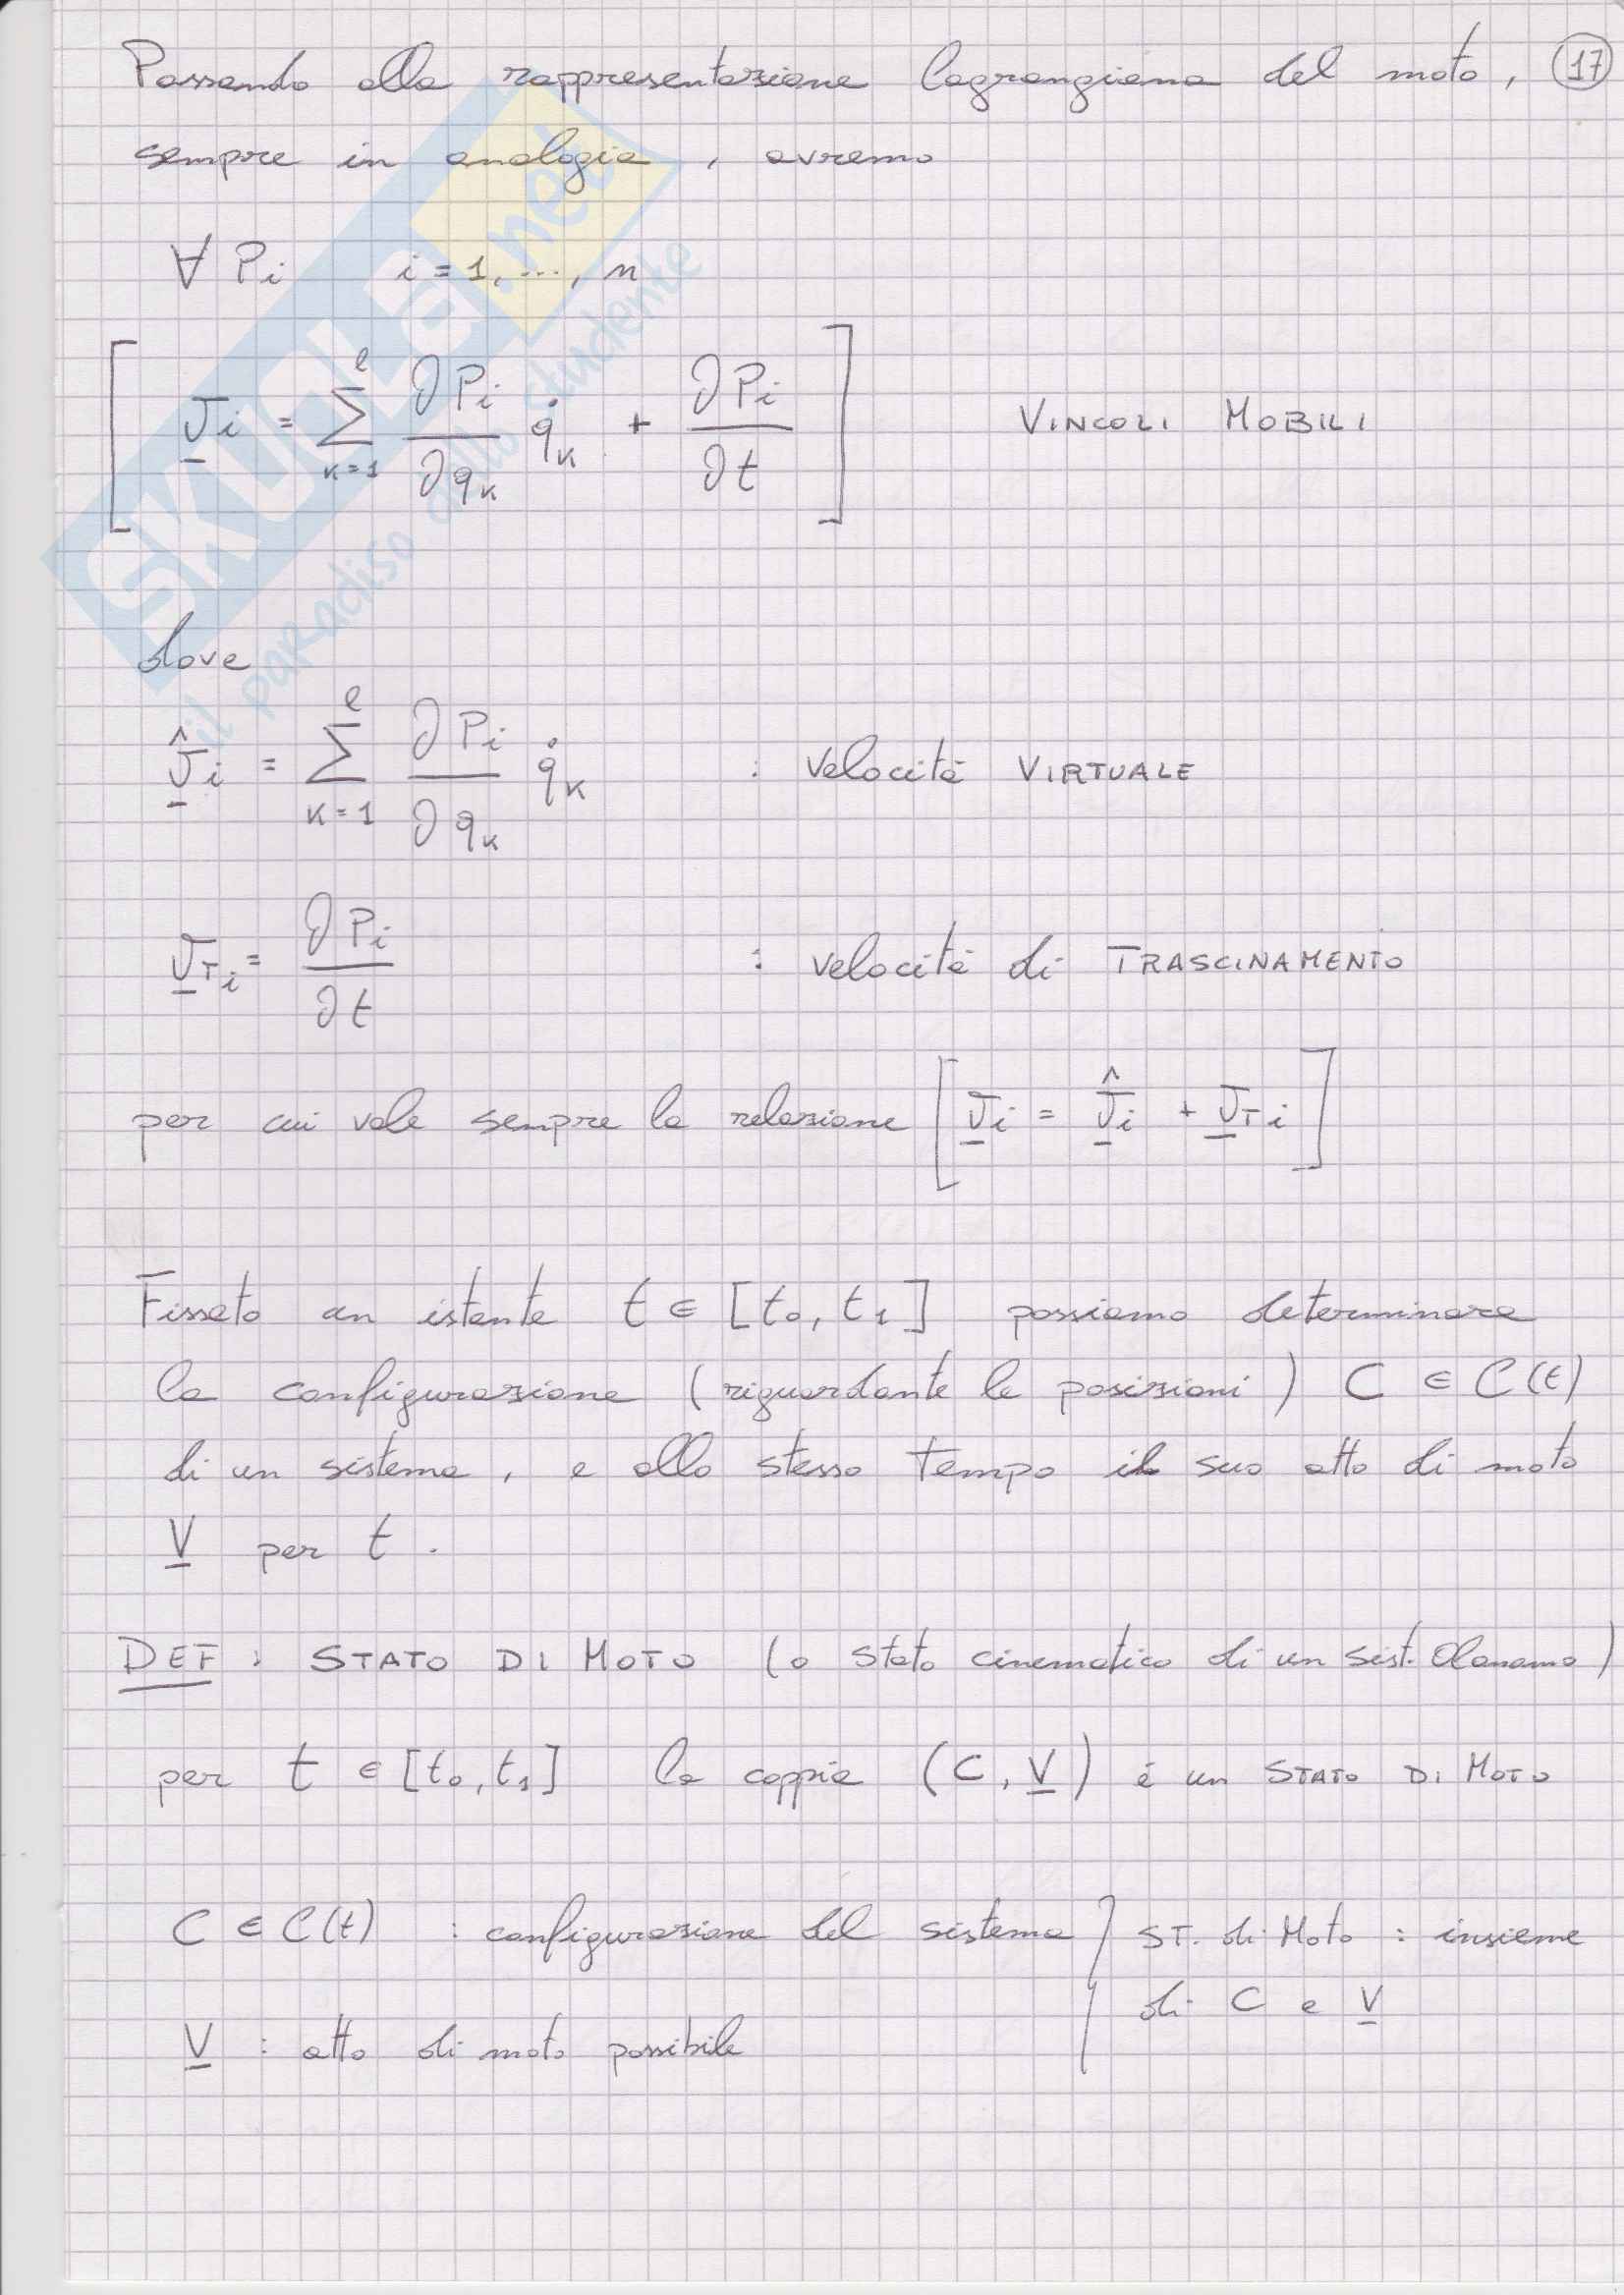 Passando alla rappresentazione lagrangiana del moto, 17
sempre in analogia, avremo
∀ Pi i = 1, ..., n
[ v̲i = Σ_{k=1}^{l} ∂Pi/∂qk q̇k + ∂Pi/∂t ] VINCOLI MOBILI
dove
v̲̂i = Σ_{k=1}^{l} ∂Pi/∂qk q̇k : velocità VIRTUALE
v̲Ti = ∂Pi/∂t : velocità di TRASCINAMENTO
per cui vale sempre la relazione [ v̲i = v̲̂i + v̲Ti ]
Fissato un istante t ∈ [t0, t1] possiamo determinare
la configurazione (riguardante le posizioni) C ∈ C(t)
di un sistema, e allo stesso tempo il suo atto di moto
V̲ per t.
DEF : STATO DI MOTO (o stato cinematico di un sist. Olonomo)
per t ∈ [t0, t1] la coppia (C, V̲) è un STATO DI MOTO
C ∈ C(t) : configurazione del sistema
V̲ : atto di moto possibile
ST. di Moto : insieme
di C e V̲
SKUOLA.net
il paradiso dello studente